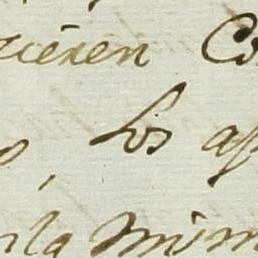 cieren Co
o, los ap
n la mism